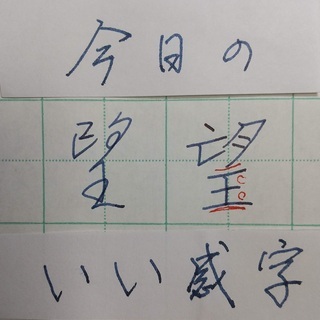 今日の
望 望
いい感字